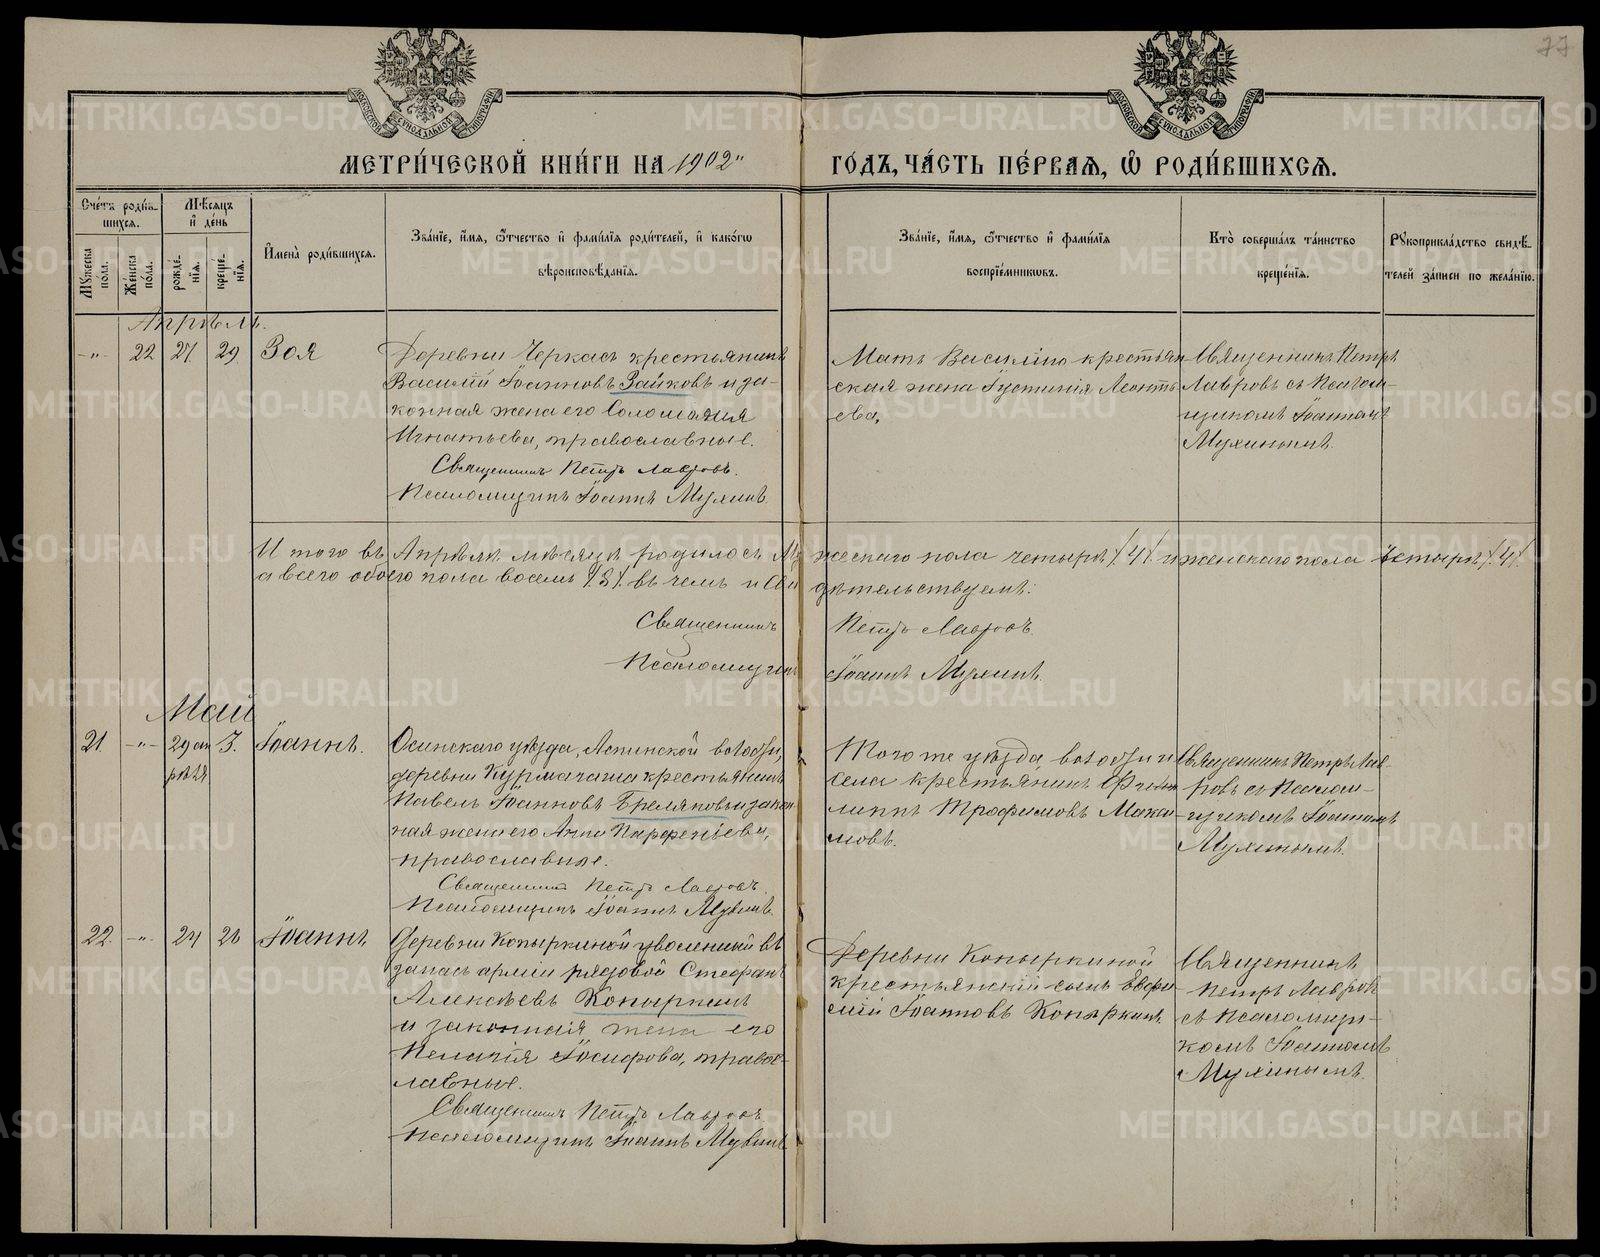 77
МЕТРИ́ЧЕСКОЙ КНИ́ГИ НА 1902"
ГО́ДЪ, ЧА́СТЬ ПЕ́РВАѦ, Ѽ РОДИ́ВШИХСѦ.
Сче́тъ роди́вшихся.
Мѣ́сяцъ и де́нь
Му́жеска пола.
Же́нска по́ла.
рожде́нїя.
креще́нїя.
И҆мена̀ роди́вшихся.
Зва́нїе, и҆́мя, ѻ҆́тчество и҆ фами́лїя роди́телей, и҆ како́гѡ
вѣроисповѣ́данїя.
Зва́нїе, и҆́мя, ѻ҆́тчество и҆ фами́лїя
воспрїе́мниковъ.
Кто̀ соверша́лъ та́инство
креще́нїя.
Рꙋкоприкла́дство свидѣ́телей за́писи по жела́нїю.
Апрѣль.
-"- 22 27 29 Зоя
Деревни Черкасъ крестьянинъ
Василій Іоанновъ Зайковъ и за-
конная жена его Соломанія
Игнатьева, православные.
Священникъ Петръ Лавровъ.
Псаломщикъ Іоаннъ Мухинъ.
Мать Василія крестьян
ская жена Іустинія Леонть
ева.
Священникъ Петръ
Лавровъ съ Псалом-
щикомъ Іоанномъ
Мухинымъ.
Итого въ Апрѣлѣ мѣсяцѣ родилось Му жескаго пола четыре /4/. и женскаго пола четыре /4/.
а всего обоего пола восемь /8/. въ чемъ и сви дѣтельствуемъ:
Священникъ Петръ Лавровъ.
Псаломщикъ Іоаннъ Мухинъ.
Май
21 -"- 29 ап 3. Іоаннъ.
рѣля
Осинскаго уѣзда, Аспинской волости,
деревни Курмачаша крестьянинъ
Павелъ Іоанновъ Бреляковъ и закон
ная жена его Анна Парфеніева,
православные.
Священникъ Петръ Лавровъ.
Псаломщикъ Іоаннъ Мухинъ.
Того же уѣзда, волости и
села крестьянинъ Фи
липпъ Трофимовъ Макси
мовъ.
Священникъ Петръ Лав-
ровъ съ Псалом-
щикомъ Іоанномъ
Мухинымъ.
22. -"- 24 26 Іоаннъ
Деревни Копыркиной уволенный въ
запасъ арміи рядовой Стефанъ
Алексѣевъ Копыркинъ
и законная жена его
Пелагія Іосифова, правос-
лавные.
Священникъ Петръ Лавровъ
Псаломщикъ Іоаннъ Мухинъ
Деревни Копыркиной
крестьянскій сынъ Евфи
мій Іоанновъ Копыркинъ.
Священникъ
Петръ Лавровъ
съ Псаломщи-
комъ Іоанномъ
Мухинымъ.
METRIKI.GASO-URAL.RU